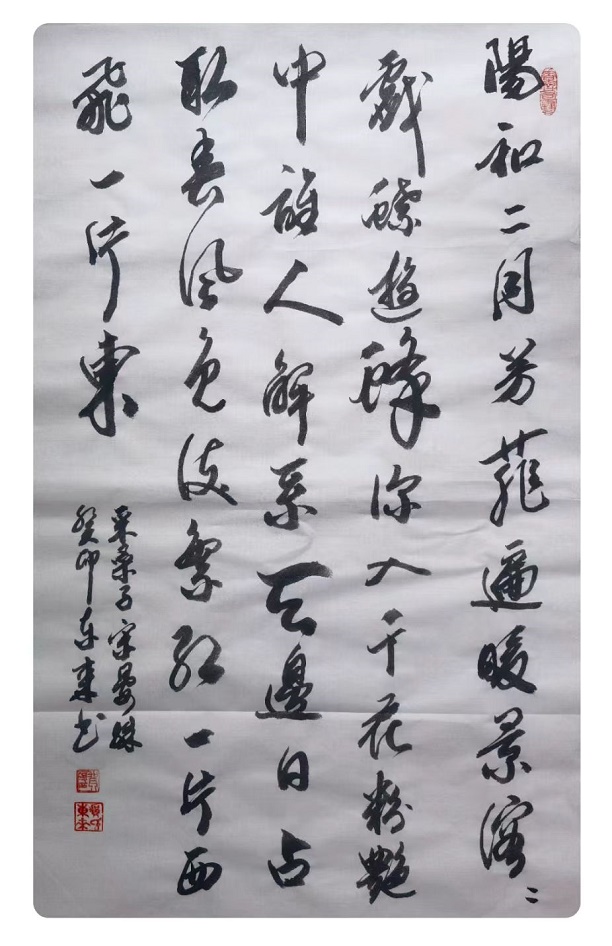 陽和二月芳菲遍暖景溶二
戲蝶遊蜂深入千花粉艷
中誰人解系天邊日占
取春風免使繁紅一片西
飛一片東
采桑子宋晏殊
癸卯书